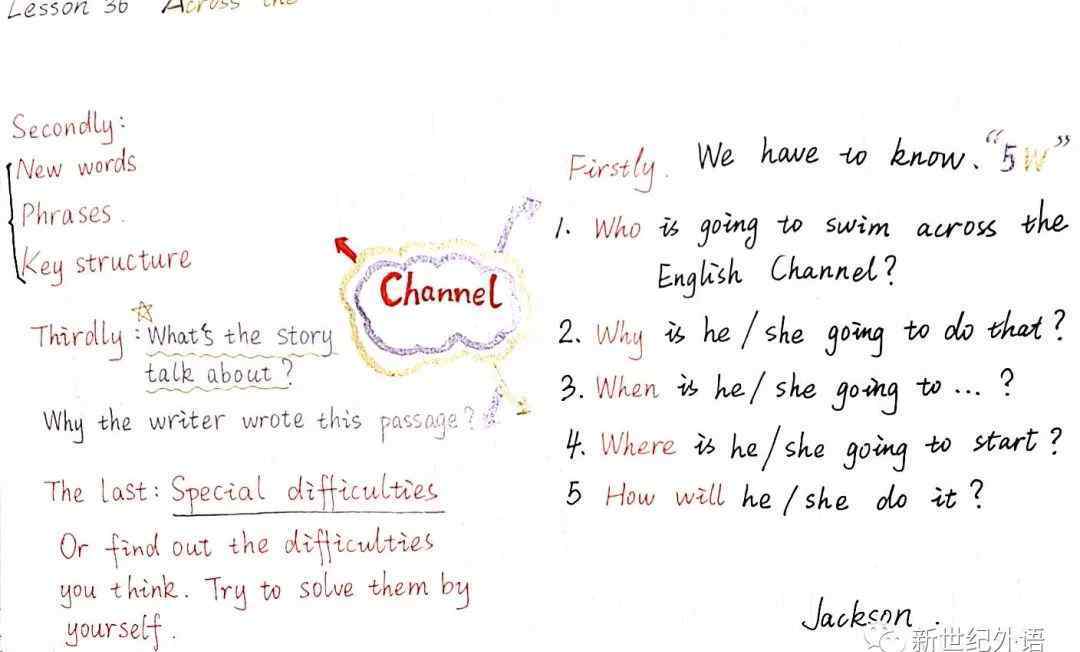 Lesson 36 Across the
Secondly:
New words
Phrases.
Key structure
Thirdly: What's the story
talk about?
Why the writer wrote this passage?
The last: Special difficulties
Or find out the difficulties
you think. Try to solve them by
yourself.
Channel
Firstly. We have to know. "5W"
1. Who is going to swim across the
English Channel?
2. Why is he/she going to do that?
3. When is he/she going to ... ?
4. Where is he/she going to start?
5 How will he/she do it?
Jackson.
新世纪外语